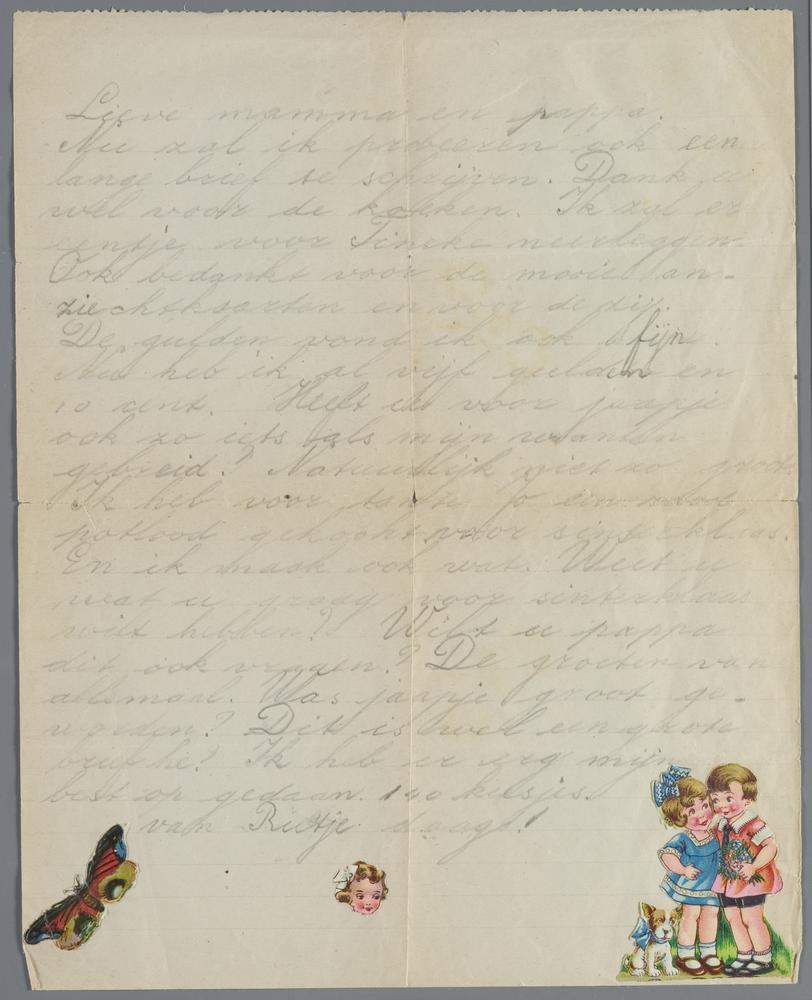 Lieve mamma en pappa.
Nu zal ik probeeren ook een
lange brief te schrijven. Dank u
wel voor de koeken. Ik zal er
eentje voor Tineke neerleggen.
Ook bedankt voor de mooie an-
ziechtkaarten en voor de
De gulden vond ik ook fijn.
Nu heb ik al vijf gulden en
10 cent. Heeft u voor jaapje
ook zo iets als mijn wanten
gebreid? Natuurlijk niet zo groot.
Ik heb voor tante Jo een rood
potlood gekocht voor sinterklaas.
En ik maak ook wat. Weet u
wat u graag voor sinterklaas
wilt hebben? Wilt u pappa
dit ook vragen? De groeten van
allemaal. Was jaapje groot ge-
worden? Dit is wel een grote
brief he? Ik heb er erg mijn
best op gedaan. 100 kusjes.
van Rietje daag!